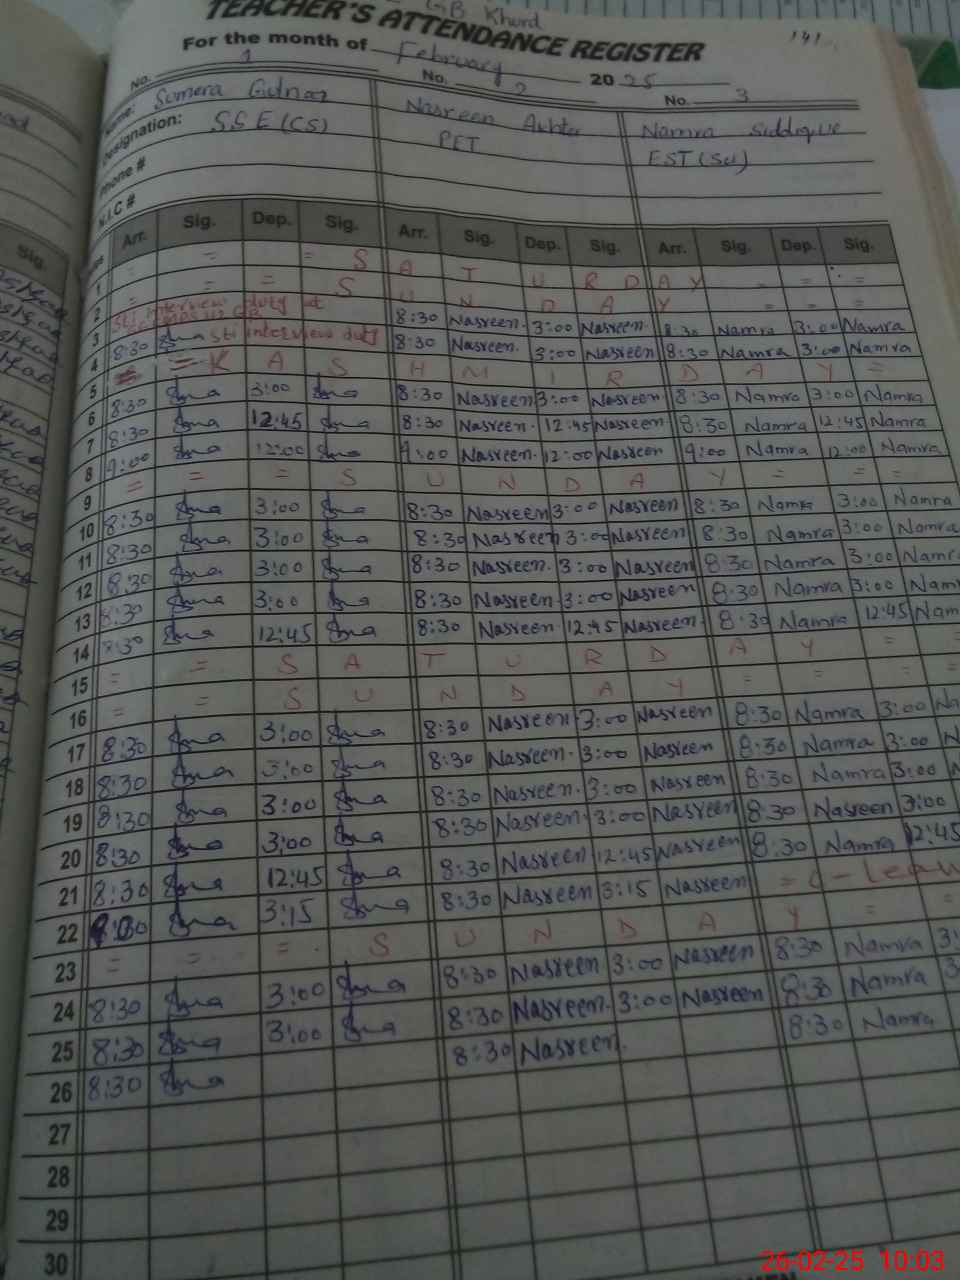 GB Khurd
TEACHER'S ATTENDANCE REGISTER
141
For the month of February 2025
No. 1 No. 2 No. 3
Name: Sumera Nasreen Akhtar Namra Siddique
Designation: S.S.E (CS) PET EST (Sci)
Phone #
N.I.C #
Arr. Sig. Dep. Sig. Arr. Sig. Dep. Sig. Arr. Sig. Dep. Sig.
1 = = = S A T U R D A Y = = =
2 = = = S U N D A Y = = =
3 STI interview duty at 8:30 Nasreen 3:00 Nasreen 8:30 Namra 3:00 Namra
4 8:30 STI interview duty 8:30 Nasreen 3:00 Nasreen 8:30 Namra 3:00 Namra
5 = K A S H M I R D A Y =
6 8:30 3:00 8:30 Nasreen 3:00 Nasreen 8:30 Namra 3:00 Namra
7 8:30 12:45 8:30 Nasreen 12:45 Nasreen 8:30 Namra 12:45 Namra
8 9:00 12:00 9:00 Nasreen 12:00 Nasreen 9:00 Namra 12:00 Namra
9 = = = S U N D A Y = = =
10 8:30 3:00 8:30 Nasreen 3:00 Nasreen 8:30 Namra 3:00 Namra
11 8:30 3:00 8:30 Nasreen 3:00 Nasreen 8:30 Namra 3:00 Namra
12 8:30 3:00 8:30 Nasreen 3:00 Nasreen 8:30 Namra 3:00 Namra
13 8:30 3:00 8:30 Nasreen 3:00 Nasreen 8:30 Namra 3:00 Nam
14 8:30 12:45 8:30 Nasreen 12:45 Nasreen 8:30 Namra 12:45 Nam
15 = = S A T U R D A Y = =
16 = = S U N D A Y = = = =
17 8:30 3:00 8:30 Nasreen 3:00 Nasreen 8:30 Namra 3:00 Na
18 8:30 3:00 8:30 Nasreen 3:00 Nasreen 8:30 Namra 3:00 N
19 8:30 3:00 8:30 Nasreen 3:00 Nasreen 8:30 Namra 3:00 N
20 8:30 3:00 8:30 Nasreen 3:00 Nasreen 8:30 Nasreen 3:00
21 8:30 12:45 8:30 Nasreen 12:45 Nasreen 8:30 Namra 12:45
22 8:30 3:15 8:30 Nasreen 3:15 Nasreen = C - Leav
23 = = = S U N D A Y = =
24 8:30 3:00 8:30 Nasreen 3:00 Nasreen 8:30 Namra 3:
25 8:30 3:00 8:30 Nasreen 3:00 Nasreen 8:30 Namra 3
26 8:30 8:30 Nasreen 8:30 Namra
27
28
29
30
26-02-25 10:03